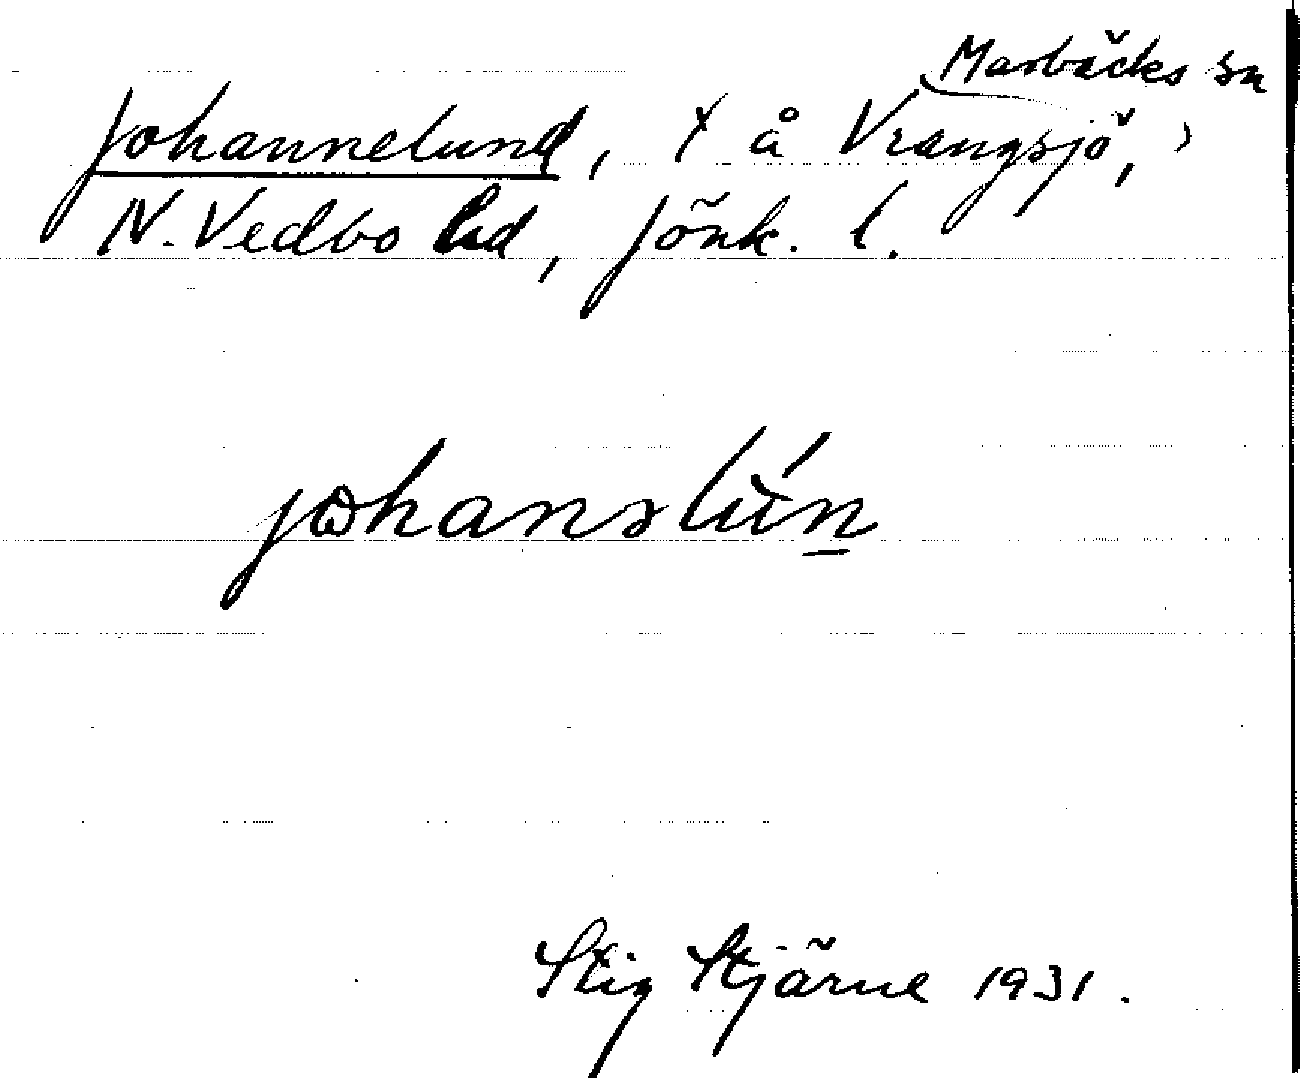 Marbäcks sn
Johannelund, t å Vrangsjö,
N. Vedbo hd, Jönk. l.
johanslún
Stig Stjärne 1931.